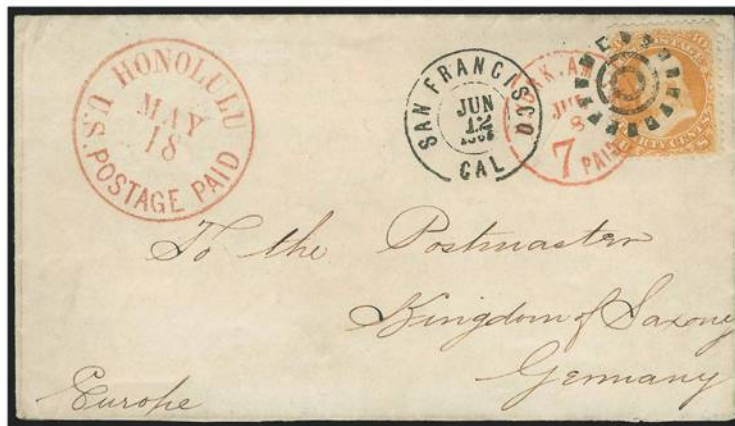 HONOLULU
MAY
18
U.S. POSTAGE PAID
SAN FRANCISCO
JUN
12
CAL
7
PAID
POSTAGE
To the Postmaster
Kingdom of Saxony
Germany
Europe